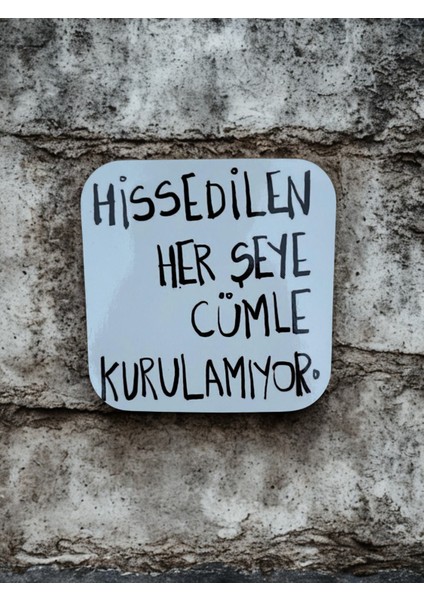 HİSSEDİLEN
HER ŞEYE
CÜMLE
KURULAMIYOR.